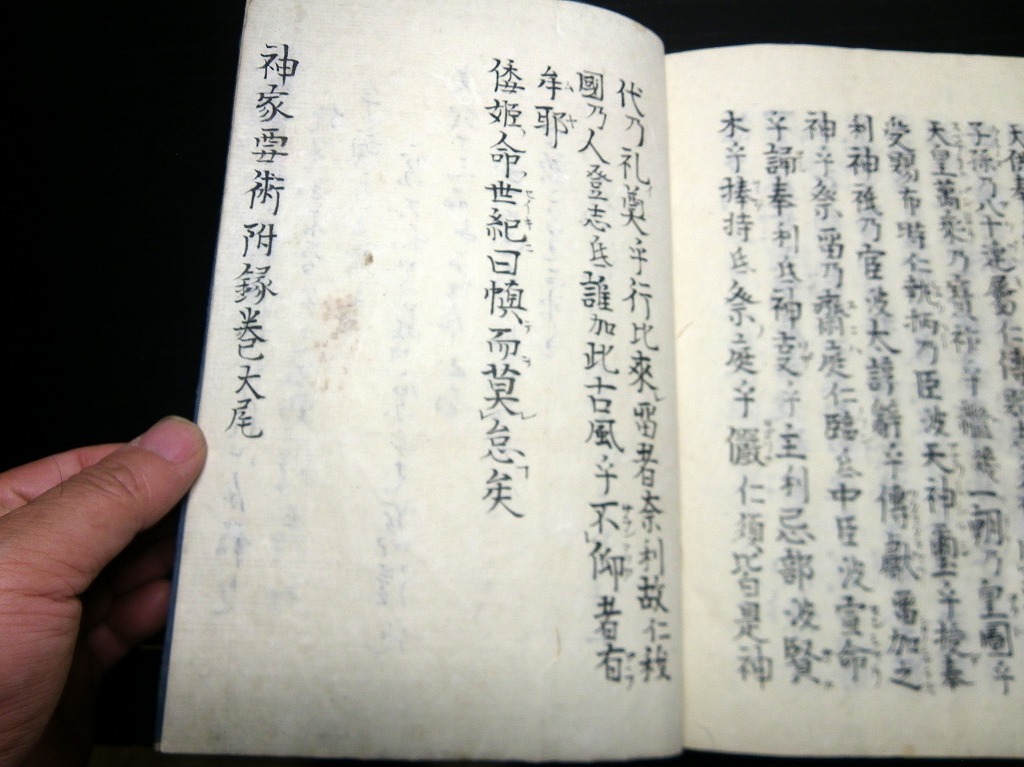 子孫乃八十連屬仁傳
天皇萬乘乃寳祚乎繼
受賜布時仁執柄乃臣波天神璽乎授奉
利神祇乃官波太諄辭乎傳獻留加之
神乎祭留乃齋庭仁臨氐中臣波霊命
乎誦奉利氐神支乎主利忌部波賢
木乎捧持氐祭庭乎儼仁須皆是神
代乃礼奠乎行比來留者奈利故仁我
國乃人登志氐誰加此古風乎不仰者有
牟耶
倭姫命世紀曰慎而莫怠矣
神家要術附録巻大尾